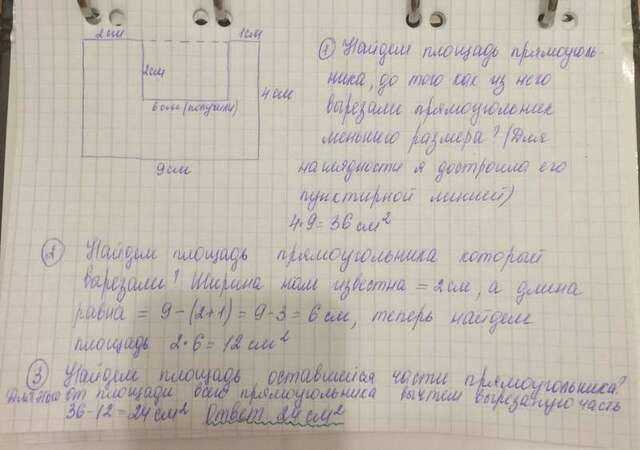 2 см
1 см
2см
4 см
6 см (получили)
9см
1 Найдем площадь прямоуголь-
ника, до того как из него
вырезали прямоугольник
меньшего размера? (Для
наглядности я достроила его
пунктирной линией)
4·9=36 см²
2 Найдем площадь прямоугольника который
вырезали? Ширина нам известна = 2см, а длина
равна = 9-(2+1)=9-3=6 см, теперь найдем
площадь 2·6=12 см²
3 Найдем площадь оставшейся части прямоугольника?
от площади всего прямоугольника вычтем вырезаную часть
36-12=24 см² Ответ 24 см²